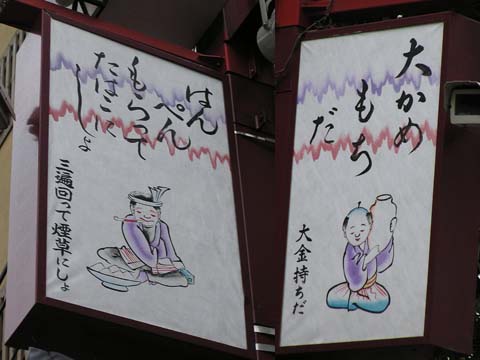 はん
ぺん
もらって
たばこに
しょ
三遍回って煙草にしょ
大かめ
もち
だ
大金持ちだ